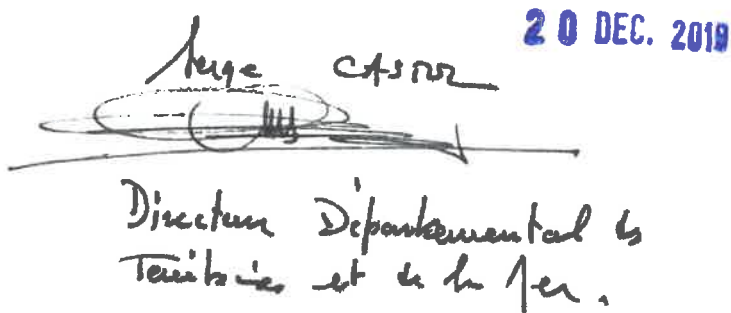 20 DEC. 2019
Serge CASTEL
Directeur Départemental des
Territoires et de la Mer.